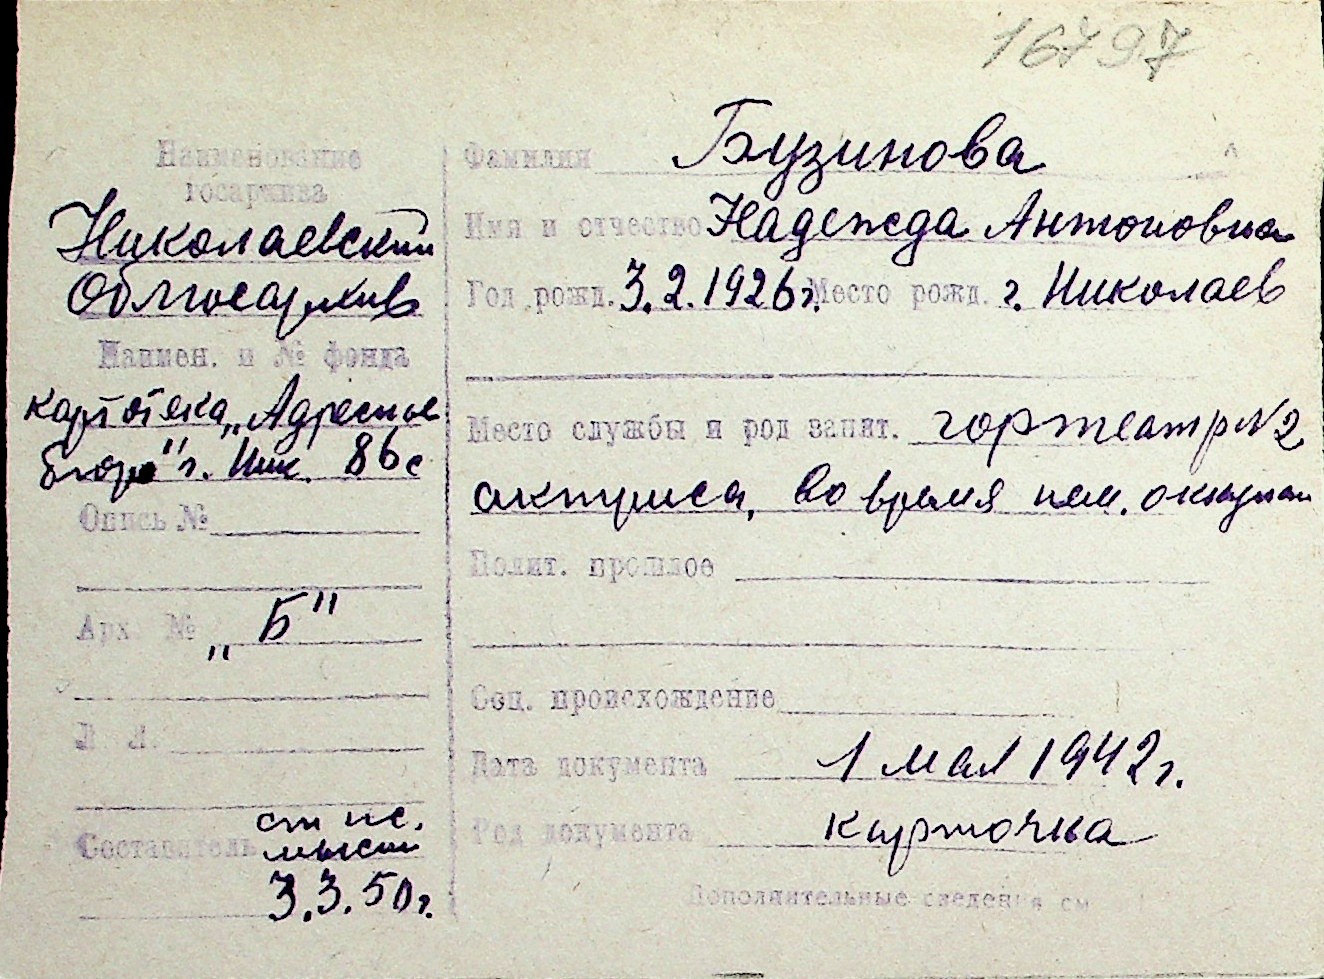 16797
Наименование
госархива
Николаевский
Облгосархив
Наимен. и № фонда
картотека „Адресное
бюро" г. Ник. 86с
Опись №
Арх. № „Б"
Л. Л.
Составитель ст нс.
3.3.50г.
Фамилия Бузинова
Имя и отчество Надежда Антоновна
Год рожд. 3.2.1926г. Место рожд. г. Николаев
Место службы и род занят. гортеатр N2
актриса, во время нем. оккупац
Полит. прошлое
Соц. происхождение
Дата документа 1 мая 1942г.
Род документа карточка
Дополнительные сведения см